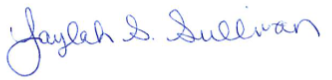 Jaylah S. Sullivan